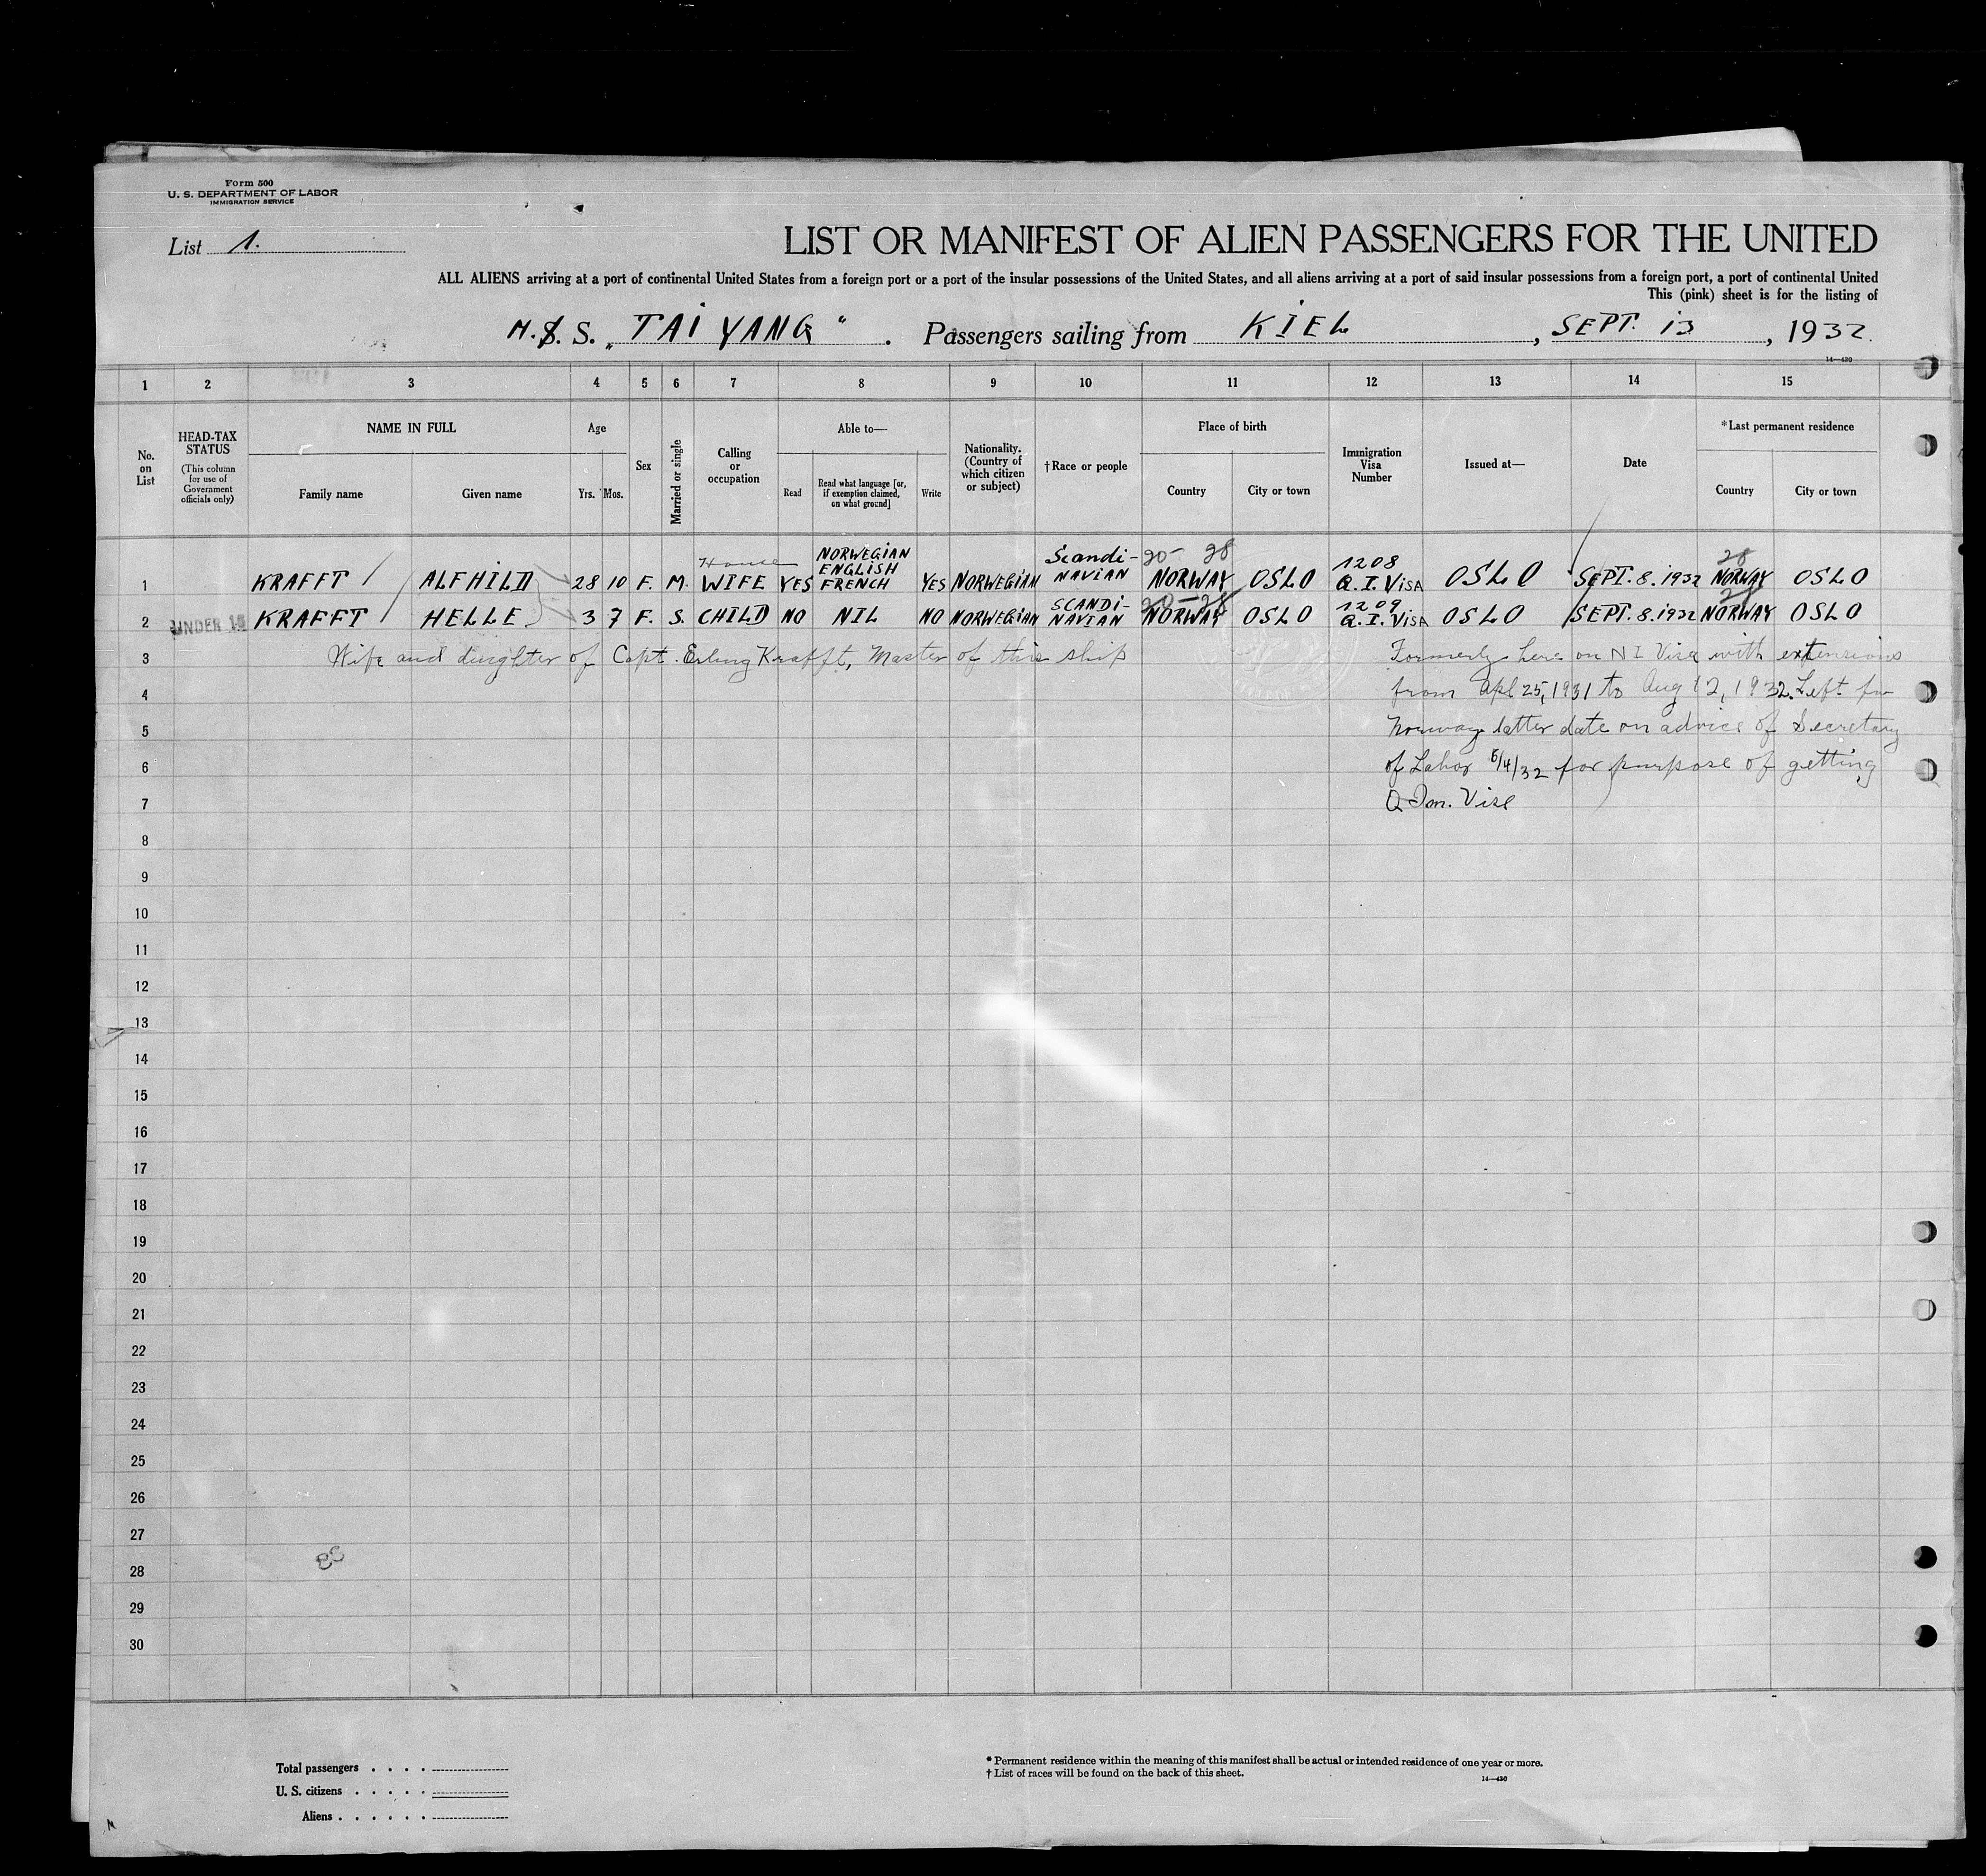 Form 500
U. S. DEPARTMENT OF LABOR
IMMIGRATION SERVICE
List 1.
LIST OR MANIFEST OF ALIEN PASSENGERS FOR THE UNITED
ALL ALIENS arriving at a port of continental United States from a foreign port or a port of the insular possessions of the United States, and all aliens arriving at a port of said insular possessions from a foreign port, a port of continental United
This (pink) sheet is for the listing of
M. S. S. „TAI YANG“. Passengers sailing from KIEL, SEPT. 13, 1932.
14—430
1 2 3 4 5 6 7 8 9 10 11 12 13 14 15
No. on List
HEAD-TAX STATUS
(This column for use of Government officials only)
NAME IN FULL
Family name
Given name
Age
Yrs. Mos.
Sex
Married or single
Calling or occupation
Able to—
Read
Read what language [or, if exemption claimed, on what ground]
Write
Nationality. (Country of which citizen or subject)
†Race or people
Place of birth
Country
City or town
Immigration Visa Number
Issued at—
Date
*Last permanent residence
Country
City or town
1 KRAFFT ALFHILD 28 10 F. M. House WIFE YES NORWEGIAN ENGLISH FRENCH YES NORWEGIAN Scandi-NAVIAN 20- 28 NORWAY OSLO 1208 Q.I. VISA OSLO SEPT. 8. 1932 28 NORWAY OSLO
2 UNDER 16 KRAFFT HELLE 3 7 F. S. CHILD NO NIL NO NORWEGIAN SCANDI-NAVIAN 20-28 NORWAY OSLO 1209 Q.I. VISA OSLO SEPT. 8. 1932 28 NORWAY OSLO
3 Wife and daughter of Capt. Erling Krafft, Master of this ship Formerly here on NI Visa with extensions
4 from Apl 25, 1931 to Aug 12, 1932. Left for
5 Norway latter date on advice of Secretary
6 of Labor 6/4/32 for purpose of getting
7 Q Im. Vise
8
9
10
11
12
13
14
15
16
17
18
19
20
21
22
23
24
25
26
27
28
29
30
Total passengers
U. S. citizens
Aliens
* Permanent residence within the meaning of this manifest shall be actual or intended residence of one year or more.
† List of races will be found on the back of this sheet.
14—430